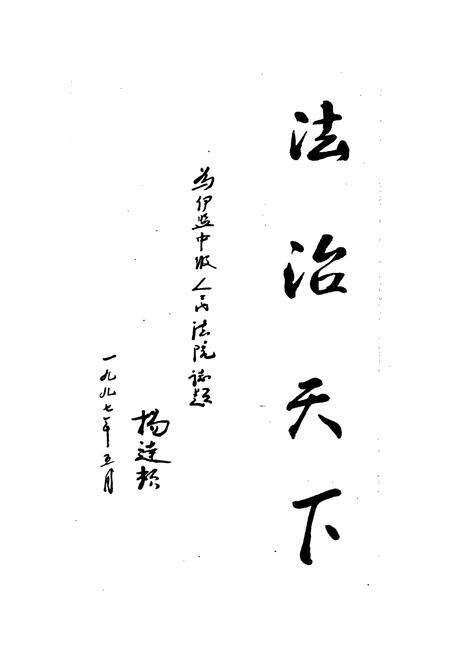 法治天下
为伊盟中级人民法院志题
杨达赖
一九九七年五月